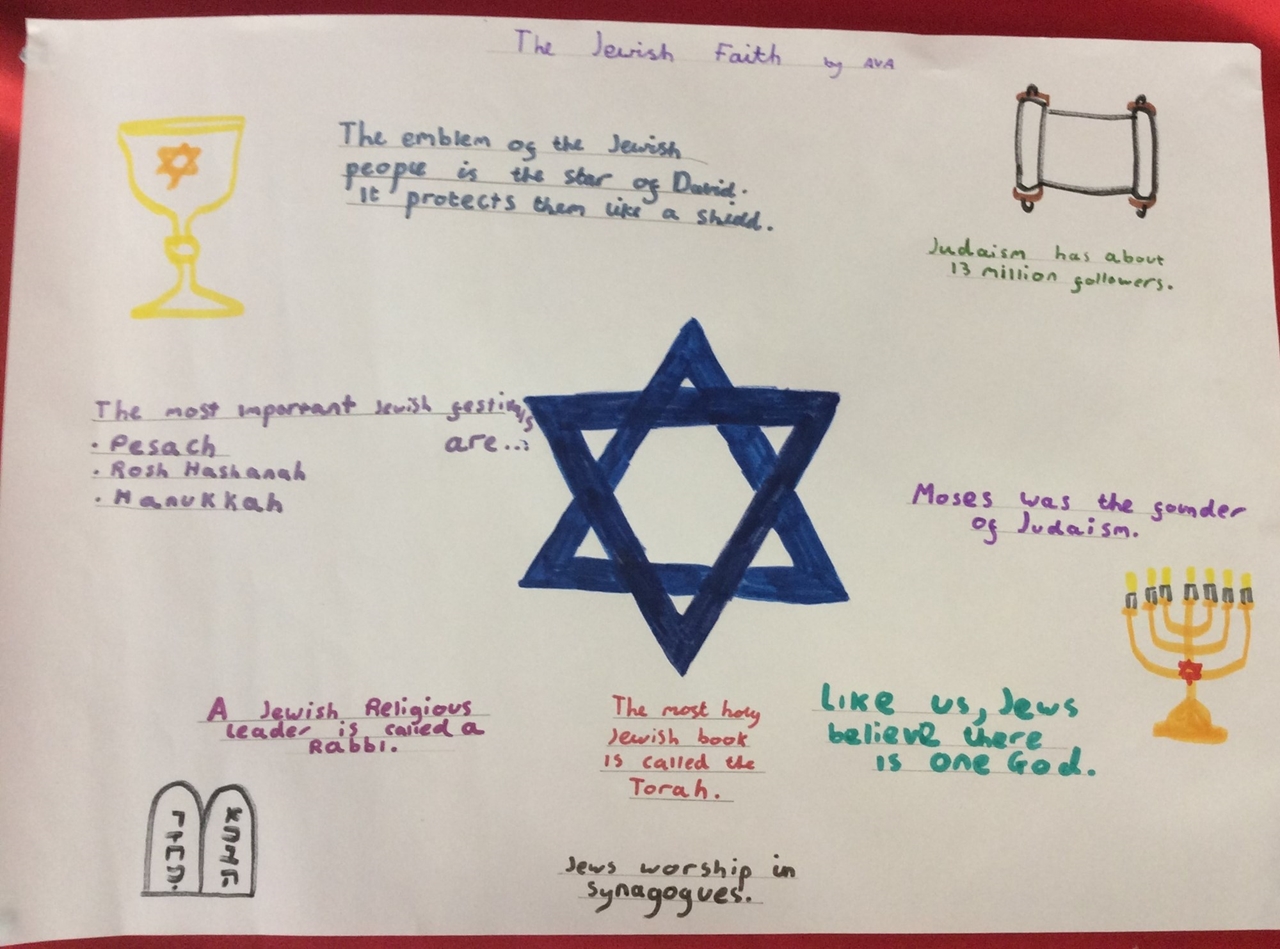 The Jewish Faith by AVA
The emblem of the Jewish
people is the star of David.
It protects them like a sheild.
Judaism has about
13 million followers.
The most important Jewish festivals
are...:
• Pesach
• Rosh Hashanah
• Hanukkah
Moses was the founder
of Judaism.
A Jewish Religious
leader is called a
Rabbi.
The most holy
Jewish book
is called the
Torah.
Like us, Jews
believe there
is one God.
Jews worship in
synagogues.